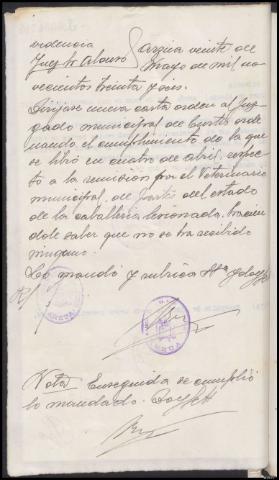 videncia
Juez Sr Alonso
Arzúa veinte de
Mayo de mil no
vecientos treinta y seis.
Diríjase nueva carta orden al Juz
gado municipal de Curtis orde
nando el cumplimiento de la que
se libró en cuatro de abril, respec
to a la remisión por el Veterinario
municipal, de partes del estado
de la caballería lesionada, hacien
dole saber que no se ha recibido
ninguno.
Lo mandó y rubrica Sª. doy fé
Nota Enseguida se cumplió
lo mandado. Doy fé